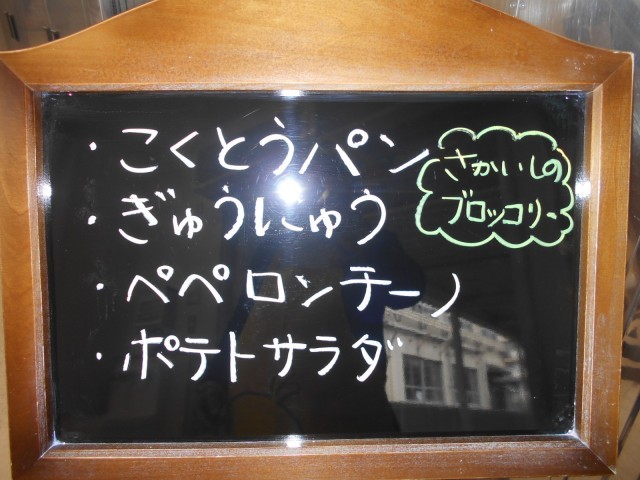 ・こくとうパン
・ぎゅうにゅう
・ペペロンチーノ
・ポテトサラダ
さかいしの
ブロッコリー